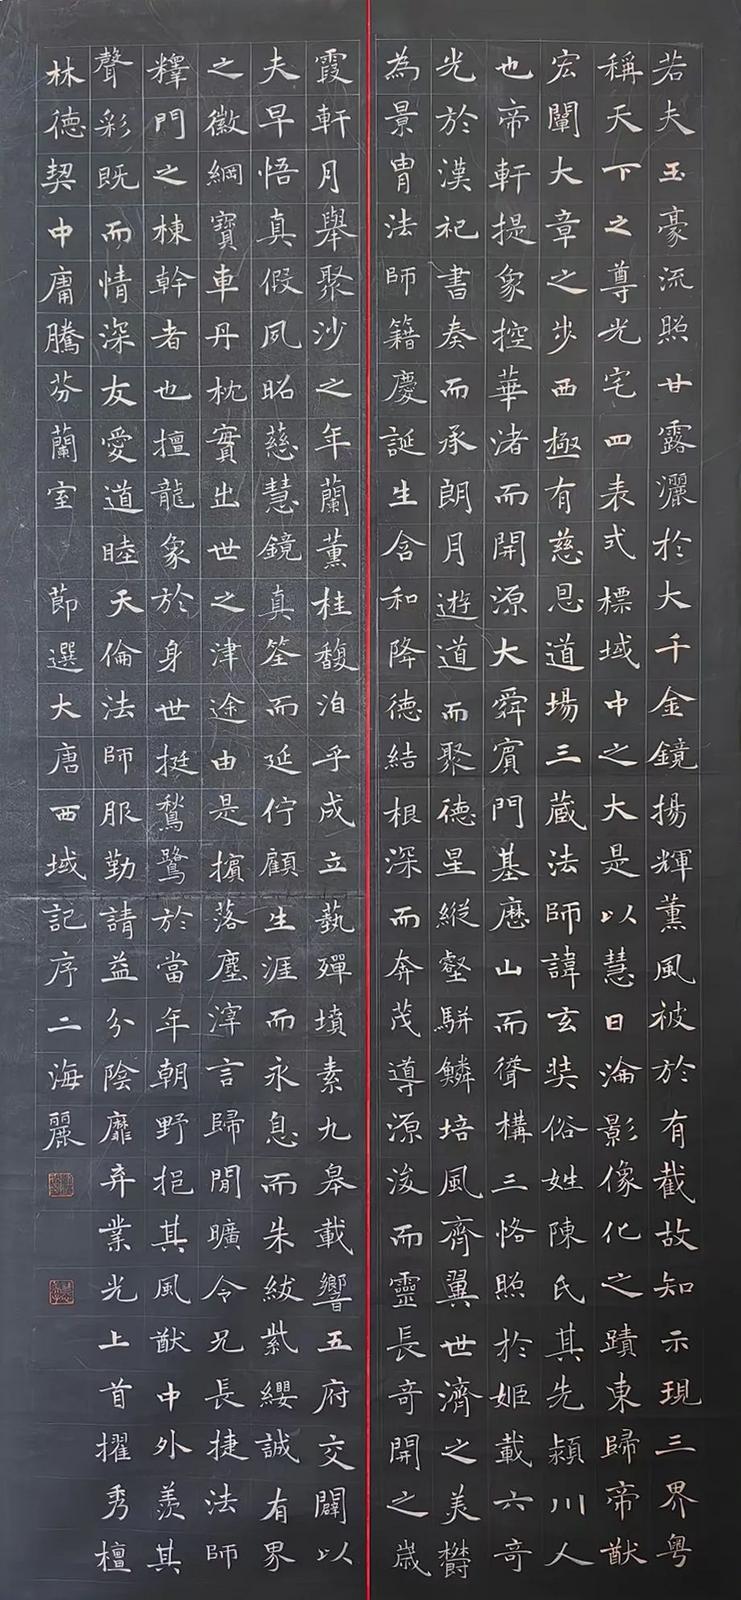 若夫玉豪流照甘露灑於大千金鏡揚輝薰風被於有截故知示現三界粤
稱天下之尊光宅四表式標域中之大是以慧日淪影像化之蹟東歸帝猷
宏闡大章之步西極有慈恩道場三藏法師諱玄奘俗姓陳氏其先潁川人
也帝軒提象控華渚而開源大舜賓門基歷山而聳構三恪照於姬載六奇
光於漢祀書奏而承朗月遊道而聚德星縱壑駢鱗培風齊翼世濟之美鬱
為景胄法師籍慶誕生含和降德結根深而奔茂導源浚而靈長奇開之歲
霞軒月舉聚沙之年蘭薰桂馥洎乎成立藝殫墳素九皋載響五府交闢以
夫早悟真假夙昭慈慧鏡真筌而延佇顧生涯而永息而朱紱紫纓誠有界
之徽綱寶車丹枕實出世之津途由是擯落塵滓言歸閒曠令兄長捷法師
釋門之棟幹者也擅龍象於身世挺鶖鷺於當年朝野挹其風猷中外羨其
聲彩既而情深友愛道睦天倫法師服勤請益分陰靡弃業光上首擢秀檀
林德契中庸騰芬蘭室 節選大唐西域記序二海麗